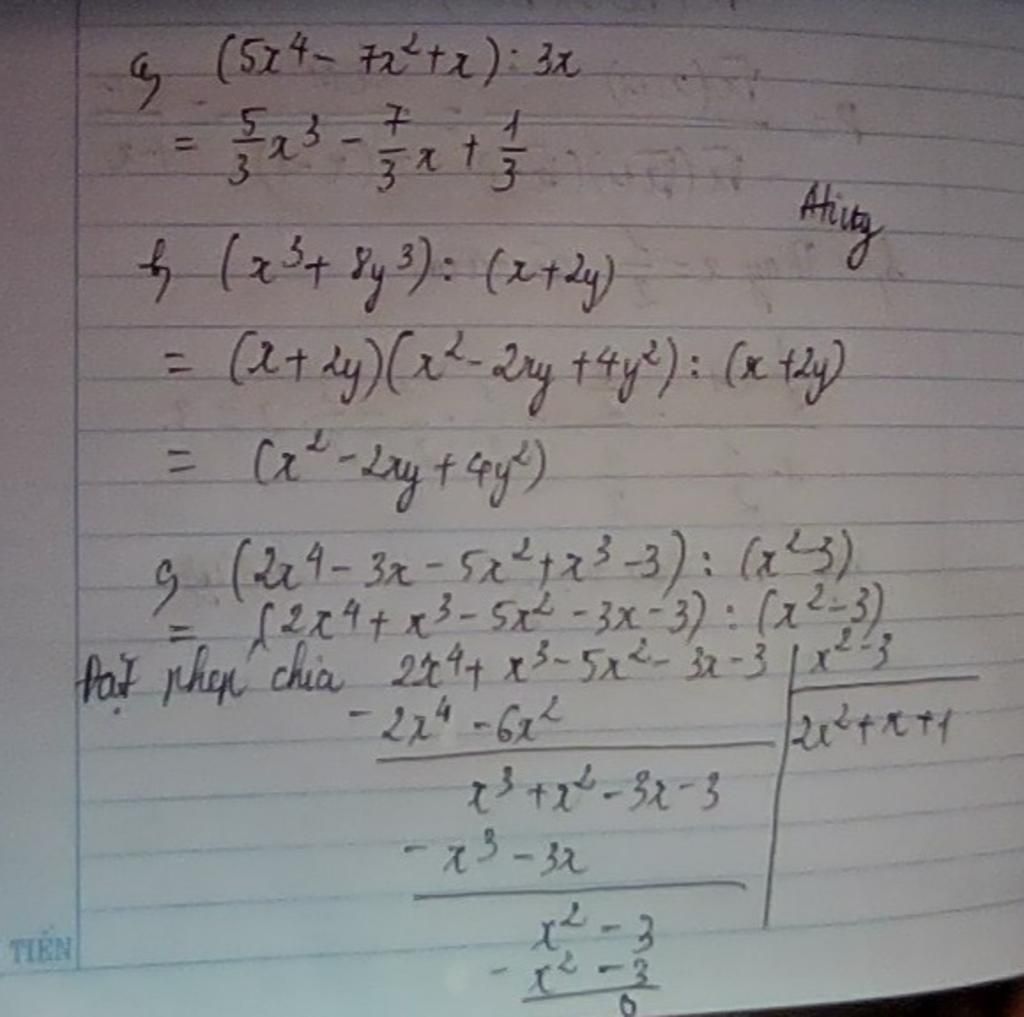 a, (5x⁴ - 7x² + x) : 3x
= 5/3 x³ - 7/3 x + 1/3
b, (x³ + 8y³) : (x + 2y)
= (x + 2y)(x² - 2xy + 4y²) : (x + 2y)
= (x² - 2xy + 4y²)
c, (2x⁴ - 3x - 5x² + x³ - 3) : (x² - 3)
= (2x⁴ + x³ - 5x² - 3x - 3) : (x² - 3)
Đặt phép chia 2x⁴ + x³ - 5x² - 3x - 3 | x² - 3
- 2x⁴ - 6x² | 2x² + x + 1
x³ + x² - 3x - 3
- x³ - 3x
x² - 3
- x² - 3
0
TIẾN